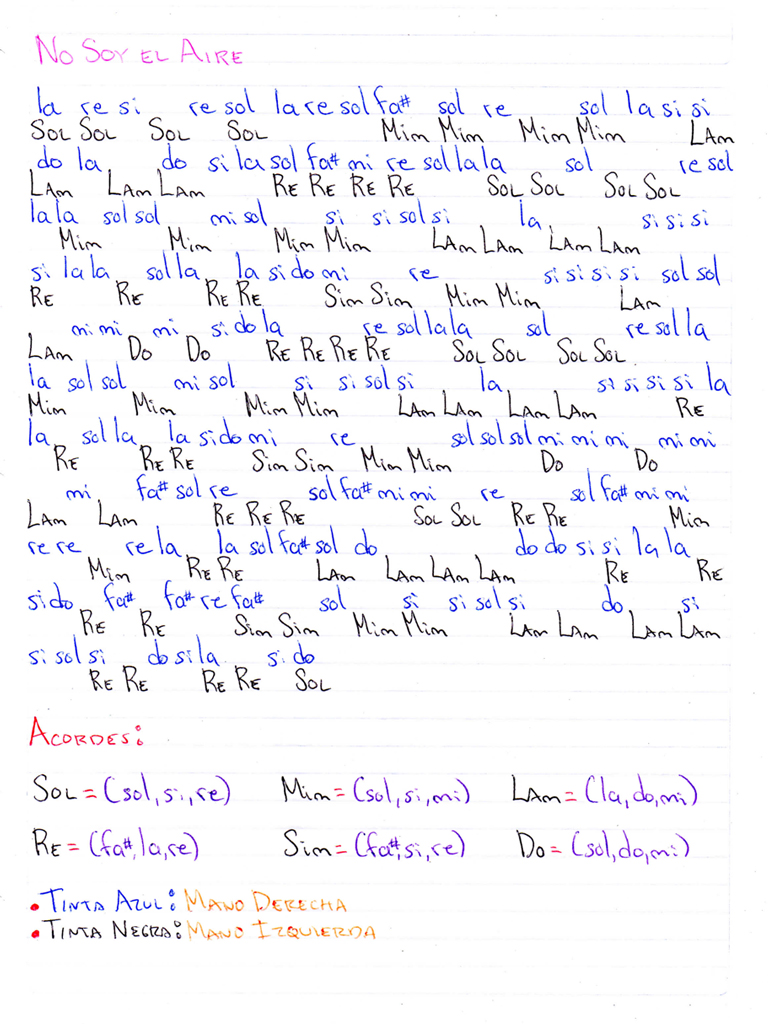 No Soy el Aire
la re si re sol la re sol fa# sol re sol la si si
Sol Sol Sol Sol Mim Mim Mim Mim LAm
do la do si la sol fa# mi re sol la la sol re sol
LAm LAm LAm Re Re Re Re Sol Sol Sol Sol
la la sol sol mi sol si si sol si la si si si
Mim Mim Mim Mim LAm LAm LAm LAm
si la la sol la la si do mi re si si si si sol sol
Re Re Re Re Sim Sim Mim Mim LAm
mi mi mi si do la re sol la la sol re sol la
LAm Do Do Re Re Re Re Sol Sol Sol Sol
la sol sol mi sol si si sol si la si si si si la
Mim Mim Mim Mim LAm LAm LAm LAm Re
la sol la la si do mi re sol sol sol mi mi mi mi mi
Re Re Re Sim Sim Mim Mim Do Do
mi fa# sol re sol fa# mi mi re sol fa# mi mi
LAm LAm Re Re Re Sol Sol Re Re Mim
re re re la la sol fa# sol do do do si si la la
Mim Re Re LAm LAm LAm LAm Re Re
si do fa# fa# re fa# sol si si sol si do si
Re Re Sim Sim Mim Mim LAm LAm LAm LAm
si sol si do si la si do
Re Re Re Re Sol
Acordes:
Sol = (sol, si, re) Mim = (sol, si, mi) LAm = (la, do, mi)
Re = (fa#, la, re) Sim = (fa#, si, re) Do = (sol, do, mi)
• Tinta Azul: Mano Derecha
• Tinta Negra: Mano Izquierda